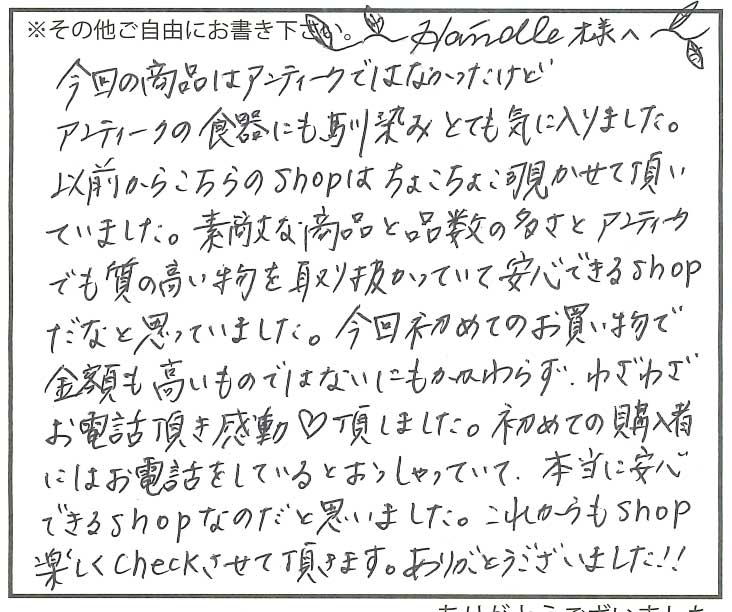 ※その他ご自由にお書き下さい。 Handle 様へ
今回の商品はアンティークではなかったけど
アンティークの食器にも馴染みとても気に入りました。
以前からこちらのshopはちょこちょこ覗かせて頂い
ていました。素敵な商品と品数の多さとアンティーク
でも質の高い物を取り扱かっていて安心できるshop
だなと思っていました。今回初めてのお買い物で
金額も高いものではないにもかかわらず、わざわざ
お電話頂き感動♡頂しました。初めての購入者
にはお電話をしているとおっしゃっていて、本当に安心
できるshopなのだと思いました。これからもshop
楽しくcheckさせて頂きます。ありがとうございました!!